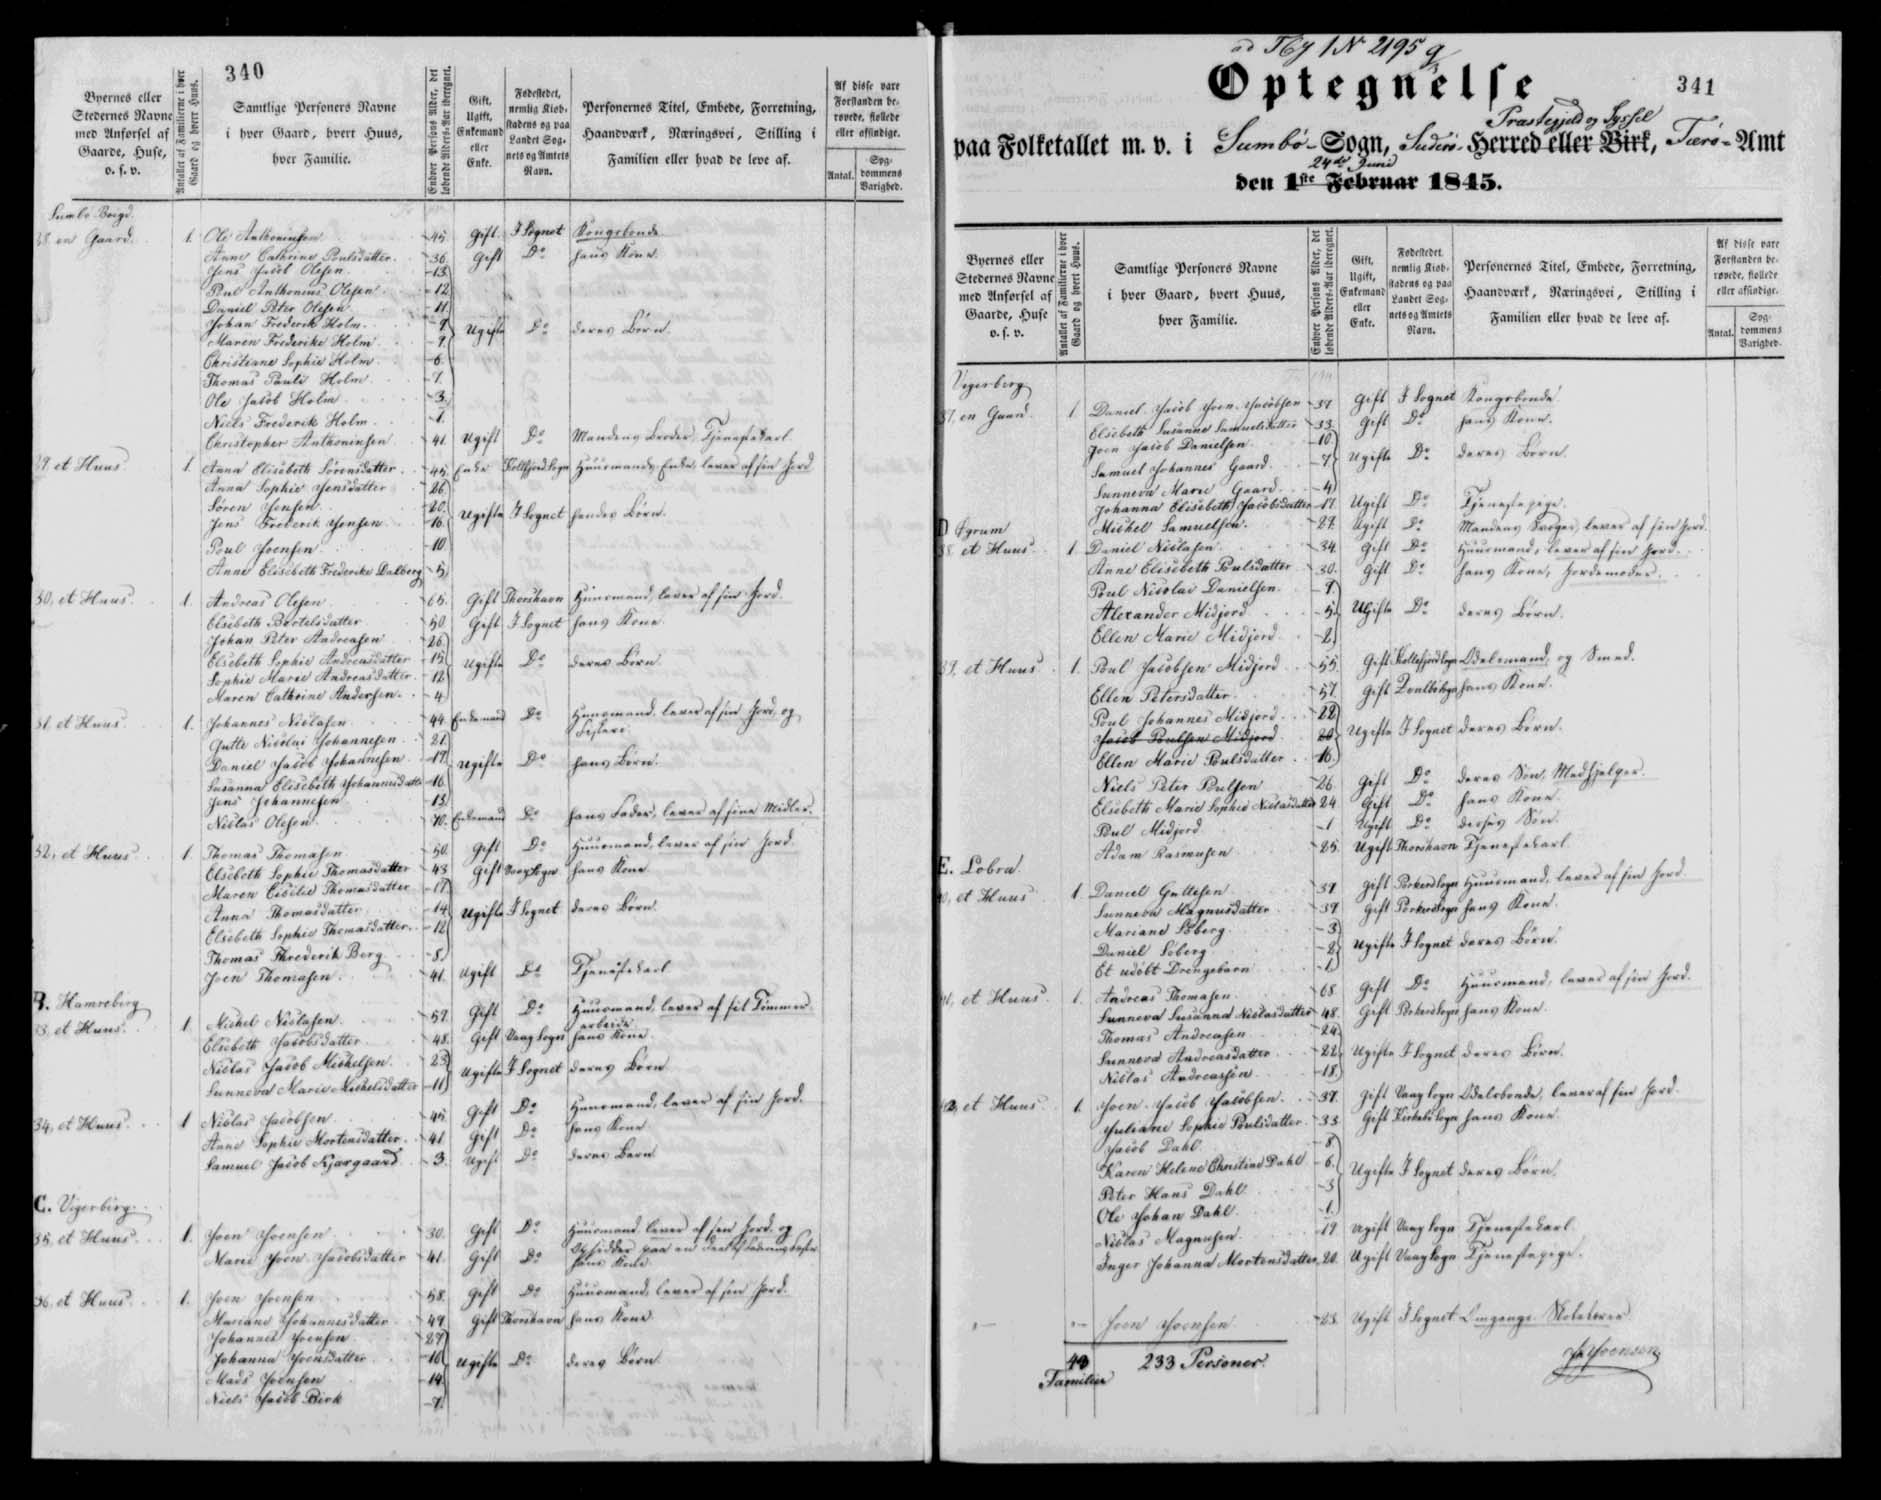 340
Byernes eller Stedernes Navne med Anførsel af Gaarde, Huse, o. s. v.
Antallet af Familierne i hver Gaard og hvert Huus.
Samtlige Personers Navne i hver Gaard, hvert Huus, hver Familie.
Enhver Persons Alder, det løbende Alders-Aar iberegnet.
Gift, Ugift, Enkemand eller Enke.
Fødestedet, nemlig Kiøbstadens og paa Landet Sognets og Amtets Navn.
Personernes Titel, Embede, Forretning, Haandværk, Næringsvei, Stilling i Familien eller hvad de leve af.
Af disse vare Forstanden berøvede, fiollede eller afsindige.
Antal. Sygdommens Varighed.
Sumbø Boigd.
28 en Gaard. 1. Ole Anthoniussen 45. Gift I Sognet Kongsbonde
Anne Cathrine Poulsdatter. 36. Gift Do hans Kone.
Jens Jacob Olesen. 13
Poul Anthonius Olesen. 12
Daniel Peter Olesen 11
Johan Frederik Holm. 9 Ugifte Do deres Børn.
Maren Frederikke Holm. 9.
Christiane Sophie Holm. 6.
Thomas Pauli Holm. 7.
Ole Jacob Holm. 3.
Niels Frederik Holm. 1.
Christopher Anthoniussen 41. Ugift Do Mandens Broder, Tjenestekarl.
29 et Huus. 1. Anna Elisabeth Sørensdatter. 45. Enke Huusmands Enke, lever af sin Jord
Anna Sophie Jensdatter 26.
Søren Jensen. 20. Ugifte I Sognet hendes Børn.
Jens Frederik Jensen 16.
Poul Joensen. 10.
Anne Elisebeth Frederike Dalberg 5
30, et Huus. 1. Andreas Olesen 65. Gift Thorshavn Huusmand, lever af sin Jord.
Elsebeth Bertelsdatter 50. Gift I Sognet hans Kone
Johan Peter Andreasen 26.
Elsebeth Sophie Andreasdatter 15. Ugifte Do deres Børn
Sophie Marie Andreasdatter. 12
Maren Cathrine Andersen. 4
31. et Huus. 1. Johannes Niclasen. 44. Enkemand Do Huusmand, lever af sin Jord, og Fiskeri.
Gutte Nicolai Johannesen. 21.
Daniel Jacob Johannesen. 17. Ugifte Do hans Børn.
Susanna Elisebeth Johannisdatter 16.
Jens Johannesen 13.
Niclas Olesen. 70. Enkemand Do hans Fader, lever af sine Midler.
32, et Huus. 1. Thomas Thomasen 50. Gift Do Huusmand, lever af sin Jord.
Elsebeth Sophie Thomasdatter 43 Gift Vaag Sogn hans Kone
Maren Cicilie Thomasdatter 17
Anna Thomasdatter 14 Ugifte I Sognet deres Børn
Elsebeth Sophie Thomasdatter. 12
Thomas Threderik Berg 8.
Joen Thomasen. 41. Ugift Do Tjenestekarl
B. Hamreberg
33, et Huus. 1. Michel Niclasen. 57. Gift Do Huusmand, lever af sit Tømmer arbeide
Elsebeth Jacobsdatter. 48. Gift Vaag Sogn hans Kone.
Niclas Jacob Michelsen. 23 Ugifte I Sognet deres Børn
Sunneva Marie Michelsdatter 11
34, et Huus. 1 Niclas Jacobsen. 45. Gift Do Huusmand, lever af sin Jord.
Anne Sophie Mortensdatter. 41 Gift Do hans Kone
Samuel Jacob Kjærgaard. 3. Ugift Do deres Barn
C. Vigerberg.
35. et Huus. 1. Joen Joensen 30. Gift Do Huusmand lever af sin Jord og
Marie Joen Jacobsdatter 41. Gift Do hans Kone
36, et Huus. 1. Joen Joensen 58. Gift Do Huusmand, lever af sin Jord.
Mariane Johannesdatter. 49. Gift Thorshavn hans Kone
Johannes Joensen. 27
Johanna Joensdatter. 16. Ugifte Do deres Børn
Mads Joensen 14
Niels Jacob Birk 9.
ad 1 No 2195
341
Optegnelse
Præstegjeld og Syssel
paa Folketallet m. v. i Sumbø-Sogn, Suderø-Herred eller Birk, Færø-Amt
24de Juni
den 1ste Februar 1845.
Byernes eller Stedernes Navne med Anførsel af Gaarde, Huse o. s. v.
Antallet af Familierne i hver Gaard og hvert Huus.
Samtlige Personers Navne i hver Gaard, hvert Huus, hver Familie.
Enhver Persons Alder, det løbende Alders-Aar iberegnet.
Gift, Ugift, Enkemand eller Enke.
Fødestedet, nemlig Kiøbstadens og paa Landet Sognets og Amtets Navn.
Personernes Titel, Embede, Forretning, Haandværk, Næringsvei, Stilling i Familien eller hvad de leve af.
Af disse vare Forstanden berøvede, fiollede eller afsindige.
Antal. Sygdommens Varighed.
Vigerberg
37, en Gaard. 1 Daniel Jacob Joen Jacobsen 37 Gift I Sognet Kongsbonde.
Elsebeth Susanne Samuelsdatter 33. Gift Do hans Kone.
Joen Jacob Danielsen. 10.
Samuel Johannes Gaard. 7. Ugifte Do deres Børn.
Sunneva Marie Gaard. 4
Johanna Elisebeth Jacobsdatter 17. Ugift Do Tjenestepige.
Michel Samuelsen. 27. Ugift Do Mandens Svoger, lever af sin Jord.
D Øgrum
38. et Huus. 1 Daniel Niclasen. 34. Gift Do Huusmand, lever af sin Jord.
Anne Elisebeth Poulsdatter 30. Gift Do hans Kone, Jordemoder.
Poul Nicolai Danielsen. 9.
Alexander Midjord 5 Ugifte Do deres Børn.
Ellen Marie Midjord. 2
39, et Huus. 1. Poul Jacobsen Midjord 55. Gift Odelsmand, og Smed.
Ellen Petersdatter. 57. Gift Qvalbø hans Kone.
Poul Johannes Midjord. 22
Jacob Poulsen Midjord 20 Ugifte I Sognet deres Børn.
Ellen Marie Poulsdatter. 16.
Niels Peter Poulsen 26 Gift Do deres Søn, Medhjelper.
Elsebeth Marie Sophie Niclasdatter 24 Gift Do hans Kone
Poul Midjord. 1 Ugift Do Søn.
Adam Rasmusen 25. Ugift Thorshavn Tjenestekarl.
E. Lobra.
40, et Huus 1 Daniel Guttesen. 37 Gift Porkeri Sogn Huusmand, lever af sin Jord
Sunneva Magnusdatter 39. Gift hans Kone.
Mariane Søberg. 3
Daniel Søberg. 2 Ugifte I Sognet deres Børn.
Et udøbt Drengebarn 1
41, et Huus. 1. Andreas Thomasen. 68 Gift Do Huusmand, lever af sin Jord.
Sunneva Susanna Niclasdatter 48. Gift Porkeri Sogn hans Kone.
Thomas Andreasen 24
Sunneva Andreasdatter 22. Ugifte I Sognet deres Børn.
Niclas Andreassen 18.
42, et Huus. 1. Joen Jacob Jacobsen. 37. Gift Vaag Sogn Odelsbonde, lever af sin Jord.
Juliane Sophie Poulsdatter. 33 Gift hans Kone.
Jacob Dahl. 8.
Karen Helene Christine Dahl 6. Ugifte I Sognet deres Børn.
Peter Hans Dahl. 3
Ole Johan Dahl. 1.
Niclas Magnusen. 19 Ugift Vaag Sogn Tjenestekarl
Inger Johanna Mortensdatter. 20. Ugift Vaag Sogn Tjenestepige.
Joen Joensen 23. Ugift I Sognet Omgangs Skolelærer
43 233 Personer.
Familier
Joensen